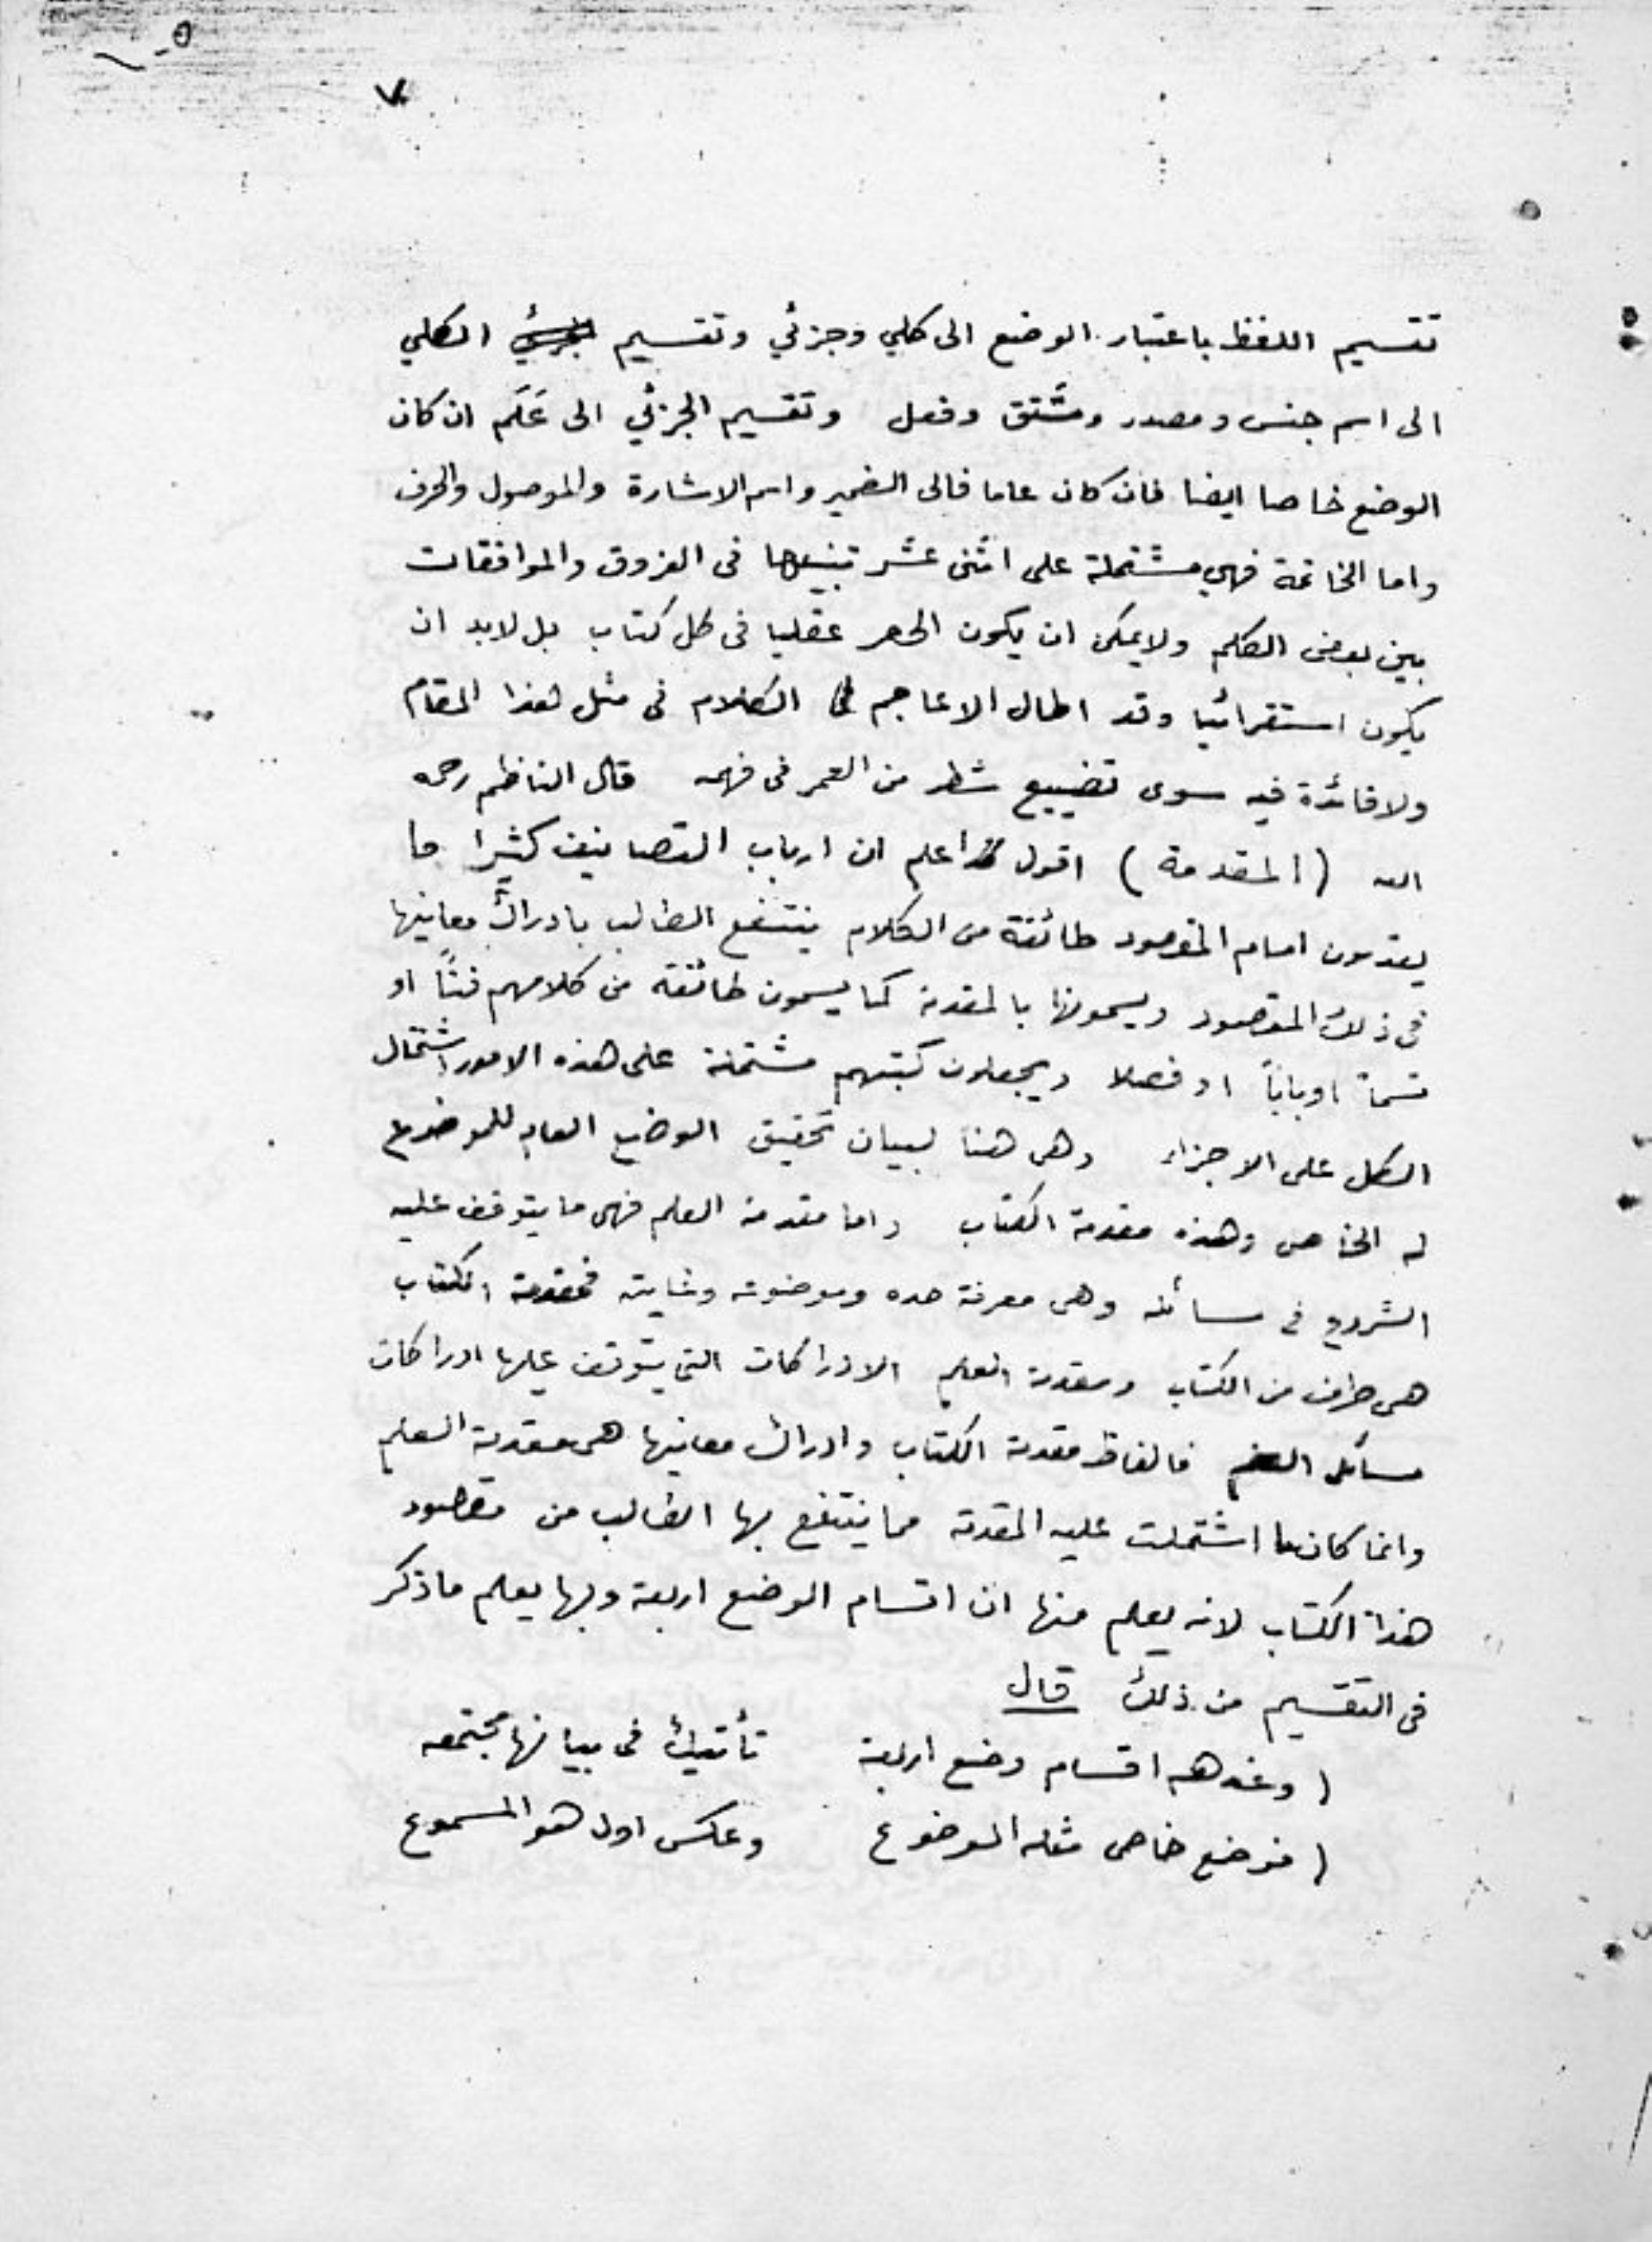 ٧
تقسيم اللفظ باعتبار الوضع الى كلي وجزئي وتقسيم الكلي
الى اسم جنس ومصدر ومشتق وفعل وتقسيم الجزئي الى عَلَم ان كان
الوضع خاصا ايضا فان كان عاما فالى الضمير واسم الاشارة والموصول والحرف
واما الخاتمة فهي مشتملة على اثنى عشر تنبيها فى الفروق والموافقات
بين بعض الكلم ولا يمكن ان يكون الحصر عقليا فى كل كتاب بل لابد ان
يكون استقرائيا وقد اطال الاعاجم الكلام فى مثل هذا المقام
ولا فائدة فيه سوى تضييع شطر من العمر فى فهمه قال الناظم رحمه
الله (المقدمة) اقول اعلم ان ارباب التصانيف كثيرا ما
يقدمون امام المقصود طائفة من الكلام ينتفع الطالب بادراك معانيها
فى ذلك المقصود ويسمونها بالمقدمة كما يسمون طائفة من كلامهم فناً او
قسماً او باباً او فصلا ويجعلون كتبهم مشتملة على هذه الامور اشتمال
الكل على الاجزاء وهى هنا لبيان تحقيق الوضع العام للموضوع
له الخاص وهذه مقدمة الكتاب واما مقدمة العلم فهى ما يتوقف عليه
الشروع فى مسائله وهى معرفة حده وموضوعه وغايته فمقدمة الكتاب
هى طرف من الكتاب ومقدمة العلم الادراكات التى يتوقف عليها ادراكات
مسائل العلم فالفاظ مقدمة الكتاب وادراك معانيها هى مقدمة العلم
وانما كان ما اشتملت عليه المقدمة مما ينتفع بها الطالب من مقصود
هذا الكتاب لانه يعلم منها ان اقسام الوضع اربعة وبها يعلم ما ذكر
فى التقسيم من ذلك قال
( وعندهم اقسام وضع اربعة تأتيك فى بيانها مجتمعه
( فوضع خاص مثله الموضوع وعكس اول هو المسموع